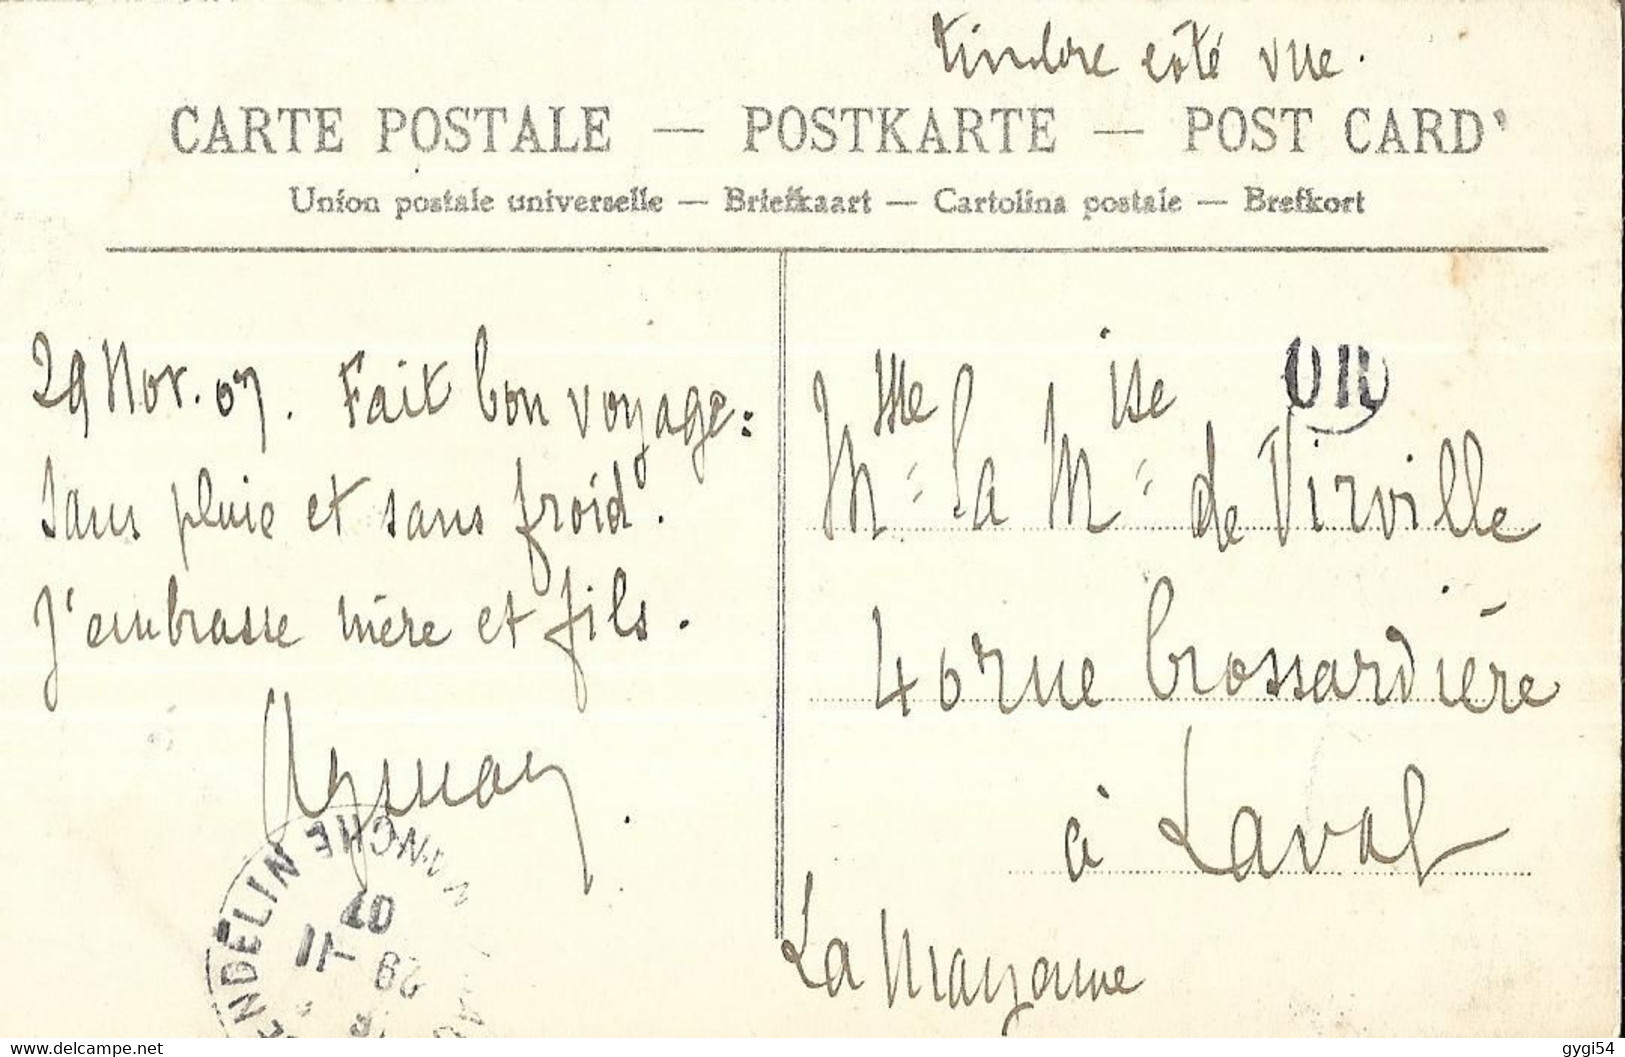 timbre côté vue.
CARTE POSTALE — POSTKARTE — POST CARD
Union postale universelle — Briefkaart — Cartolina postale — Brefkort
29 Nov. 07. Fait bon voyage:
sans pluie et sans froid.
J'embrasse mère et fils.
OR
Mme la Mise de Virville
40 rue Crossardière
à Laval
La Mayenne
MANCHE
07
29 -11
gygi54